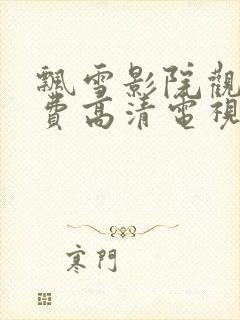 飄雪影院觀
費高清電視
寒門